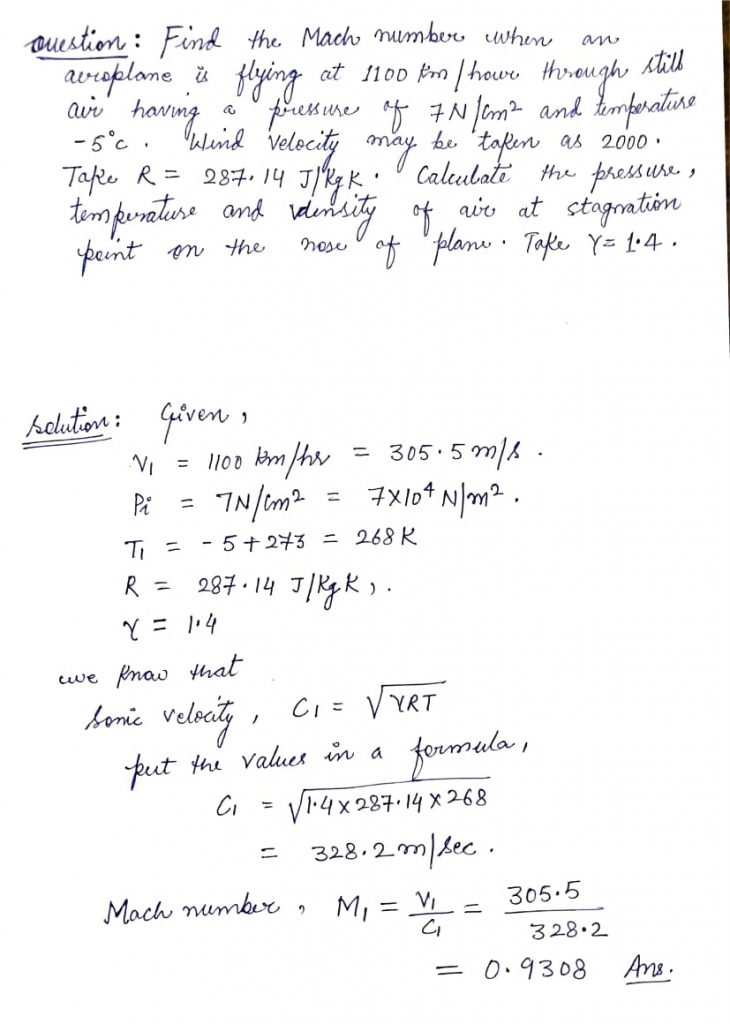 Question : Find the Mach number when an
aeroplane is flying at 1100 km/hour through still
air having a pressure of 7N/cm² and temperature
-5°c . Wind velocity may be taken as 2000 .
Take R = 287.14 J/kg K . Calculate the pressure ,
temperature and density of air at stagnation
point on the nose of plane . Take γ = 1.4 .
Solution : Given ,
V₁ = 1100 km/hr = 305.5 m/s .
Pi = 7N/cm² = 7X10⁴ N/m² .
T₁ = -5+273 = 268K
R = 287.14 J/kg K , .
γ = 1.4
we know that
Sonic velocity , C₁ = √γRT
put the values in a formula ,
C₁ = √1.4 x 287.14 x 268
= 328.2 m/sec .
Mach number , M₁ = V₁/C₁ = 305.5/328.2
= 0.9308 Ans.